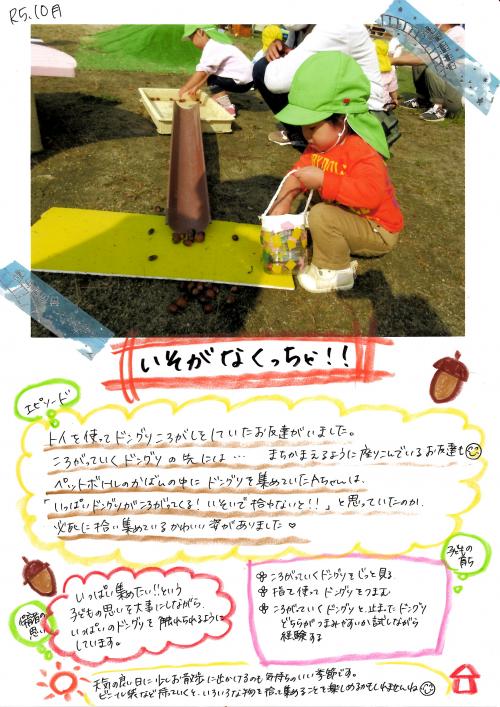 R5.10月
いそがなくっちゃ!!
エピソード
トイを使ってドングリころがしをしていたお友達がいました。
ころがっていくドングリの先には… まちかまえるように座りこんでいるお友達も
ペットボトルのかばんの中にドングリを集めていたAちゃんは、
「いっぱいドングリがころがってくる!いそいで拾わないと!!」と思っていたのか、
必死に拾い集めているかわいい姿がありました♡
保育者の思い
いっぱい集めたい!!という
子どもの思いを大事にしながら、
いっぱいのドングリを触れられるように
しています。
子どもの育ち
ころがっていくドングリをじっと見る
指を使ってドングリをつまむ
ころがっていくドングリと、止まってドングリ
どちらがつまみやすいか試しながら
経験する
天気の良い日に少しお散歩に出かけるのも気持ちのいい季節です。
ビニール袋など持っていくと、いろいろなものを拾って集めることを楽しめるかもしれませんね